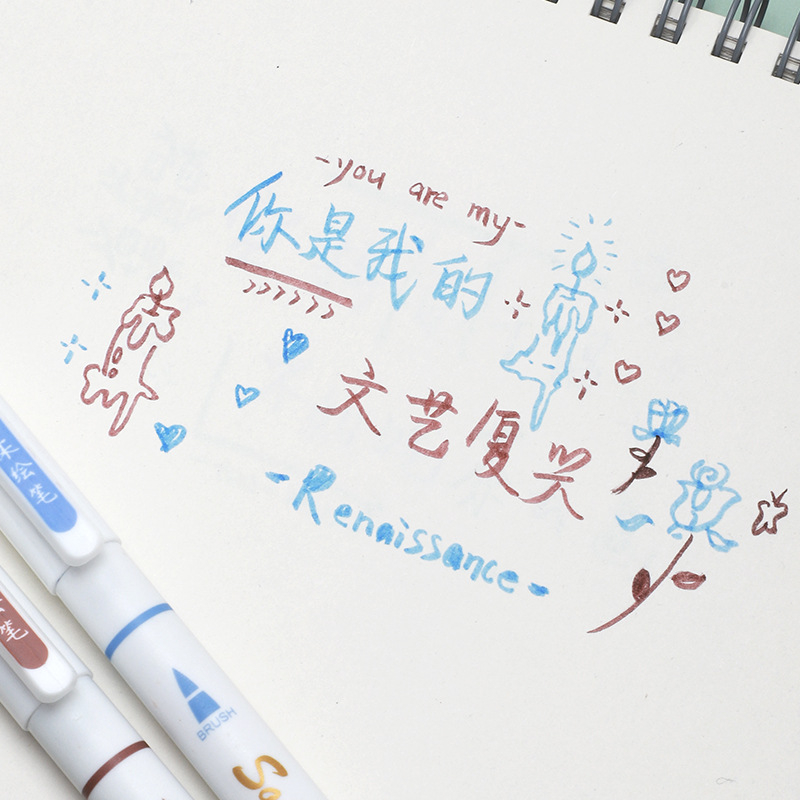 -you are my-
你是我的
文艺复兴
-Renaissance-
绘笔
笔
BRUSH